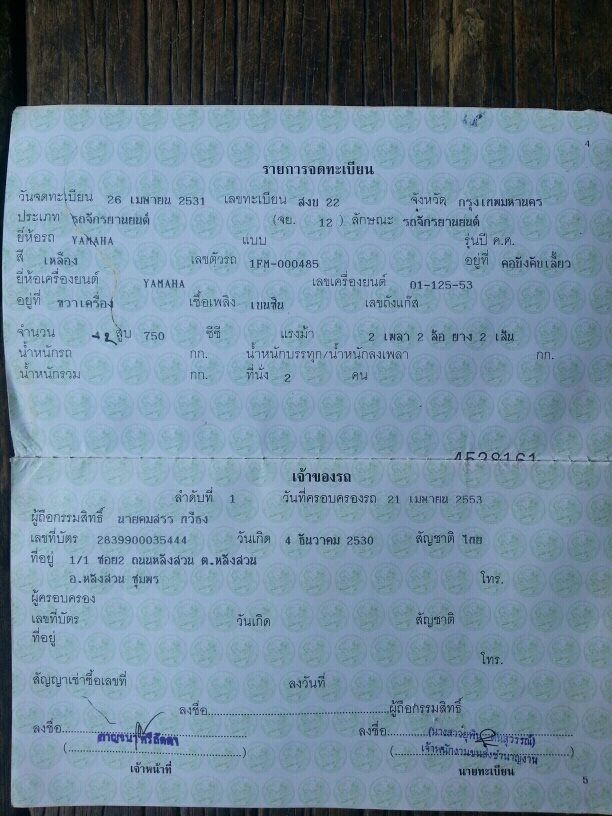 4
รายการจดทะเบียน
วันจดทะเบียน 26 เมษายน 2531 เลขทะเบียน สงข 22 จังหวัด กรุงเทพมหานคร
ประเภท รถจักรยานยนต์ (จย. 12 ) ลักษณะ รถจักรยานยนต์
ยี่ห้อรถ YAMAHA แบบ รุ่นปี ค.ศ.
สี เหลือง เลขตัวรถ 1FM-000485 อยู่ที่ คอบังคับเลี้ยว
ยี่ห้อเครื่องยนต์ YAMAHA เลขเครื่องยนต์ 01-125-53
อยู่ที่ ขวาเครื่อง เชื้อเพลิง เบนซิน เลขถังแก๊ส
จำนวน สูบ 750 ซีซี แรงม้า 2 เพลา 2 ล้อ ยาง 2 เส้น
น้ำหนักรถ กก. น้ำหนักบรรทุก/น้ำหนักลงเพลา กก.
น้ำหนักรวม กก. ที่นั่ง 2 คน
4528161
เจ้าของรถ
ลำดับที่ 1 วันที่ครอบครองรถ 21 เมษายน 2553
ผู้ถือกรรมสิทธิ์ นายคมสรร กวีธง
เลขที่บัตร 2839900035444 วันเกิด 4 ธันวาคม 2530 สัญชาติ ไทย
ที่อยู่ 1/1 ซอย2 ถนนหลังสวน ต.หลังสวน
อ.หลังสวน ชุมพร โทร.
ผู้ครอบครอง
เลขที่บัตร วันเกิด สัญชาติ
ที่อยู่
โทร.
สัญญาเช่าซื้อเลขที่ ลงวันที่
ลงชื่อ ผู้ถือกรรมสิทธิ์
ลงชื่อ ลงชื่อ
เจ้าพนักงานขนส่งชำนาญงาน
เจ้าหน้าที่ นายทะเบียน
5